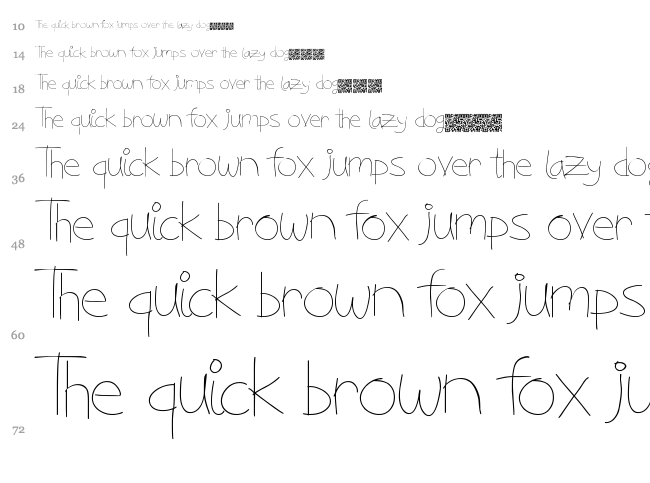 10 The quick brown fox jumps over the lazy dog
14 The quick brown fox jumps over the lazy dog
18 The quick brown fox jumps over the lazy dog
24 The quick brown fox jumps over the lazy dog
36 The quick brown fox jumps over the lazy dog
48 The quick brown fox jumps over
60 The quick brown fox jumps
72 The quick brown fox ju